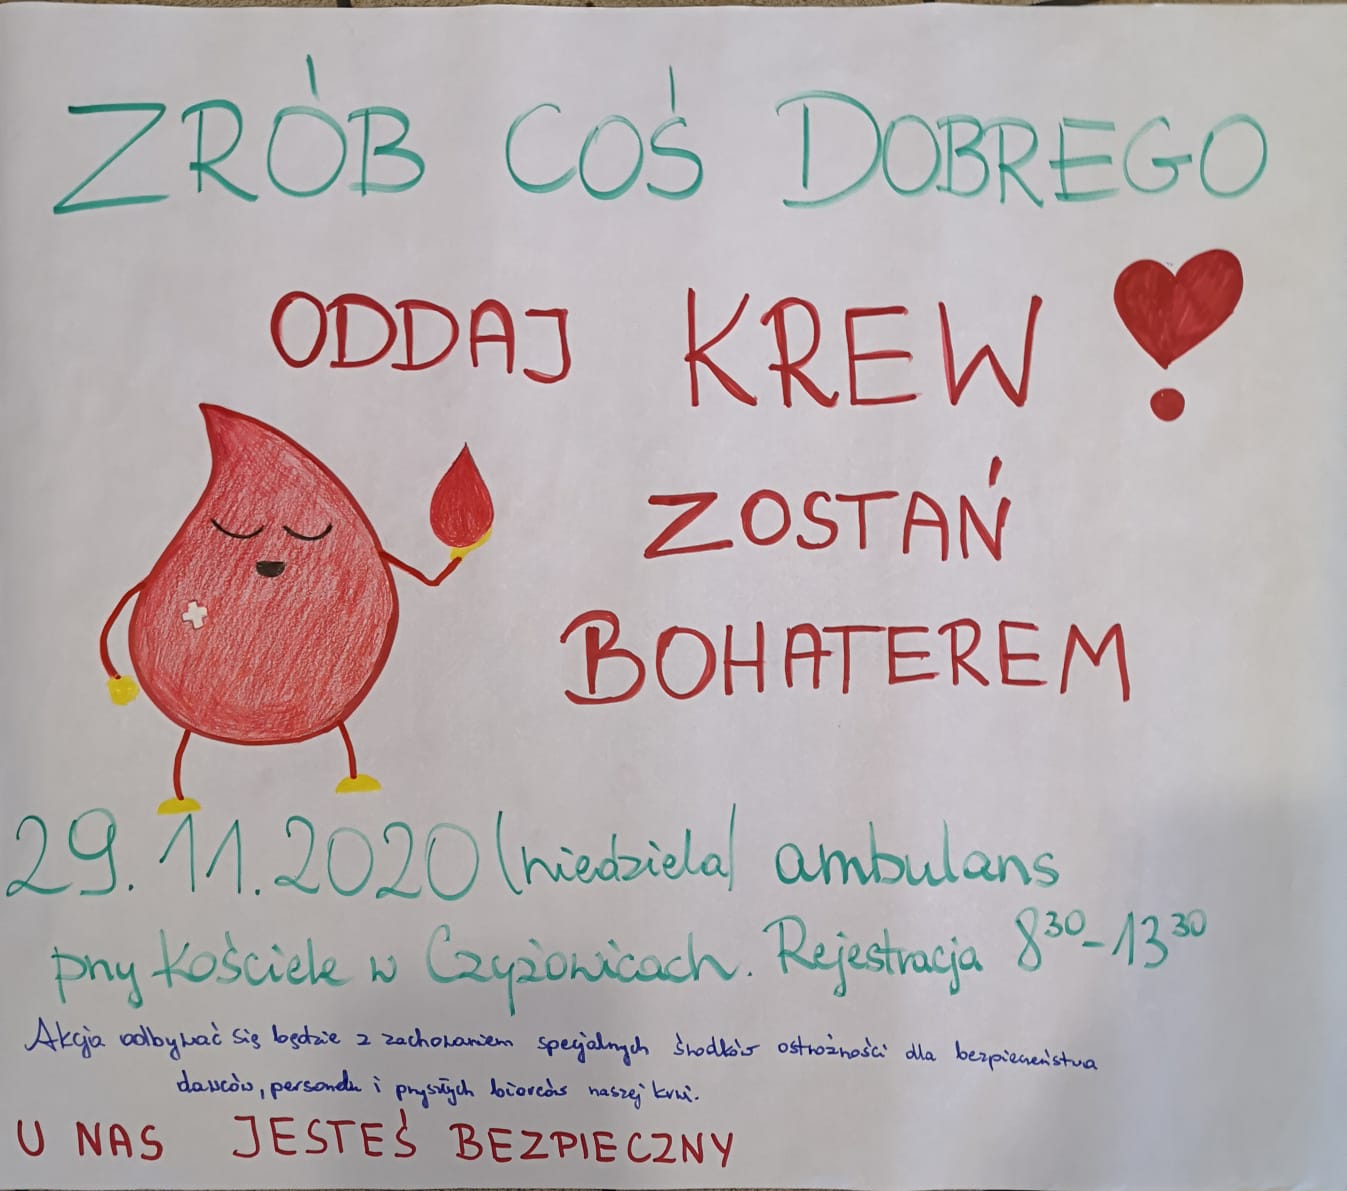 ZRÓB COŚ DOBREGO
ODDAJ KREW
ZOSTAŃ
BOHATEREM
29.11.2020 (niedziela) ambulans
przy kościele w Czyżowicach. Rejestracja 8³⁰-13³⁰
Akcja odbywać się będzie z zachowaniem specjalnych środków ostrożności dla bezpieczeństwa
dawców, personelu i przyszłych biorców naszej krwi.
U NAS JESTEŚ BEZPIECZNY